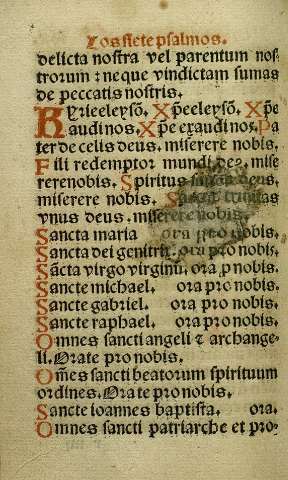 Los siete psalmos.
delicta nostra vel parentum nos-
trorum: neque vindictam sumas
de peccatis nostris.
Kyrieeleysõ. Xp̃eeleysõ. Xp̃e
audinos. Xp̃e exaudinos. Pa
ter de celis deus. miserere nobis.
Fili redemptor mundi de9. mise
rerenobis. Spiritus sancte deus.
miserere nobis. Sancta trinitas
vnus deus. miserere nobis.
Sancta maria ora pro nobis.
Sancta dei genitrix. ora pro nobis.
Sãcta virgo virginũ. ora ꝓ nobis.
Sancte michael. ora pro nobis.
Sancte gabriel. ora pro nobis.
Sancte raphael. ora pro nobis.
Omnes sancti angeli ⁊ archange-
li. Orate pro nobis.
Om̃es sancti beatorum spirituum
ordines. Orate pro nobis.
Sancte ioannes baptista. ora.
Omnes sancti patriarche et pro-